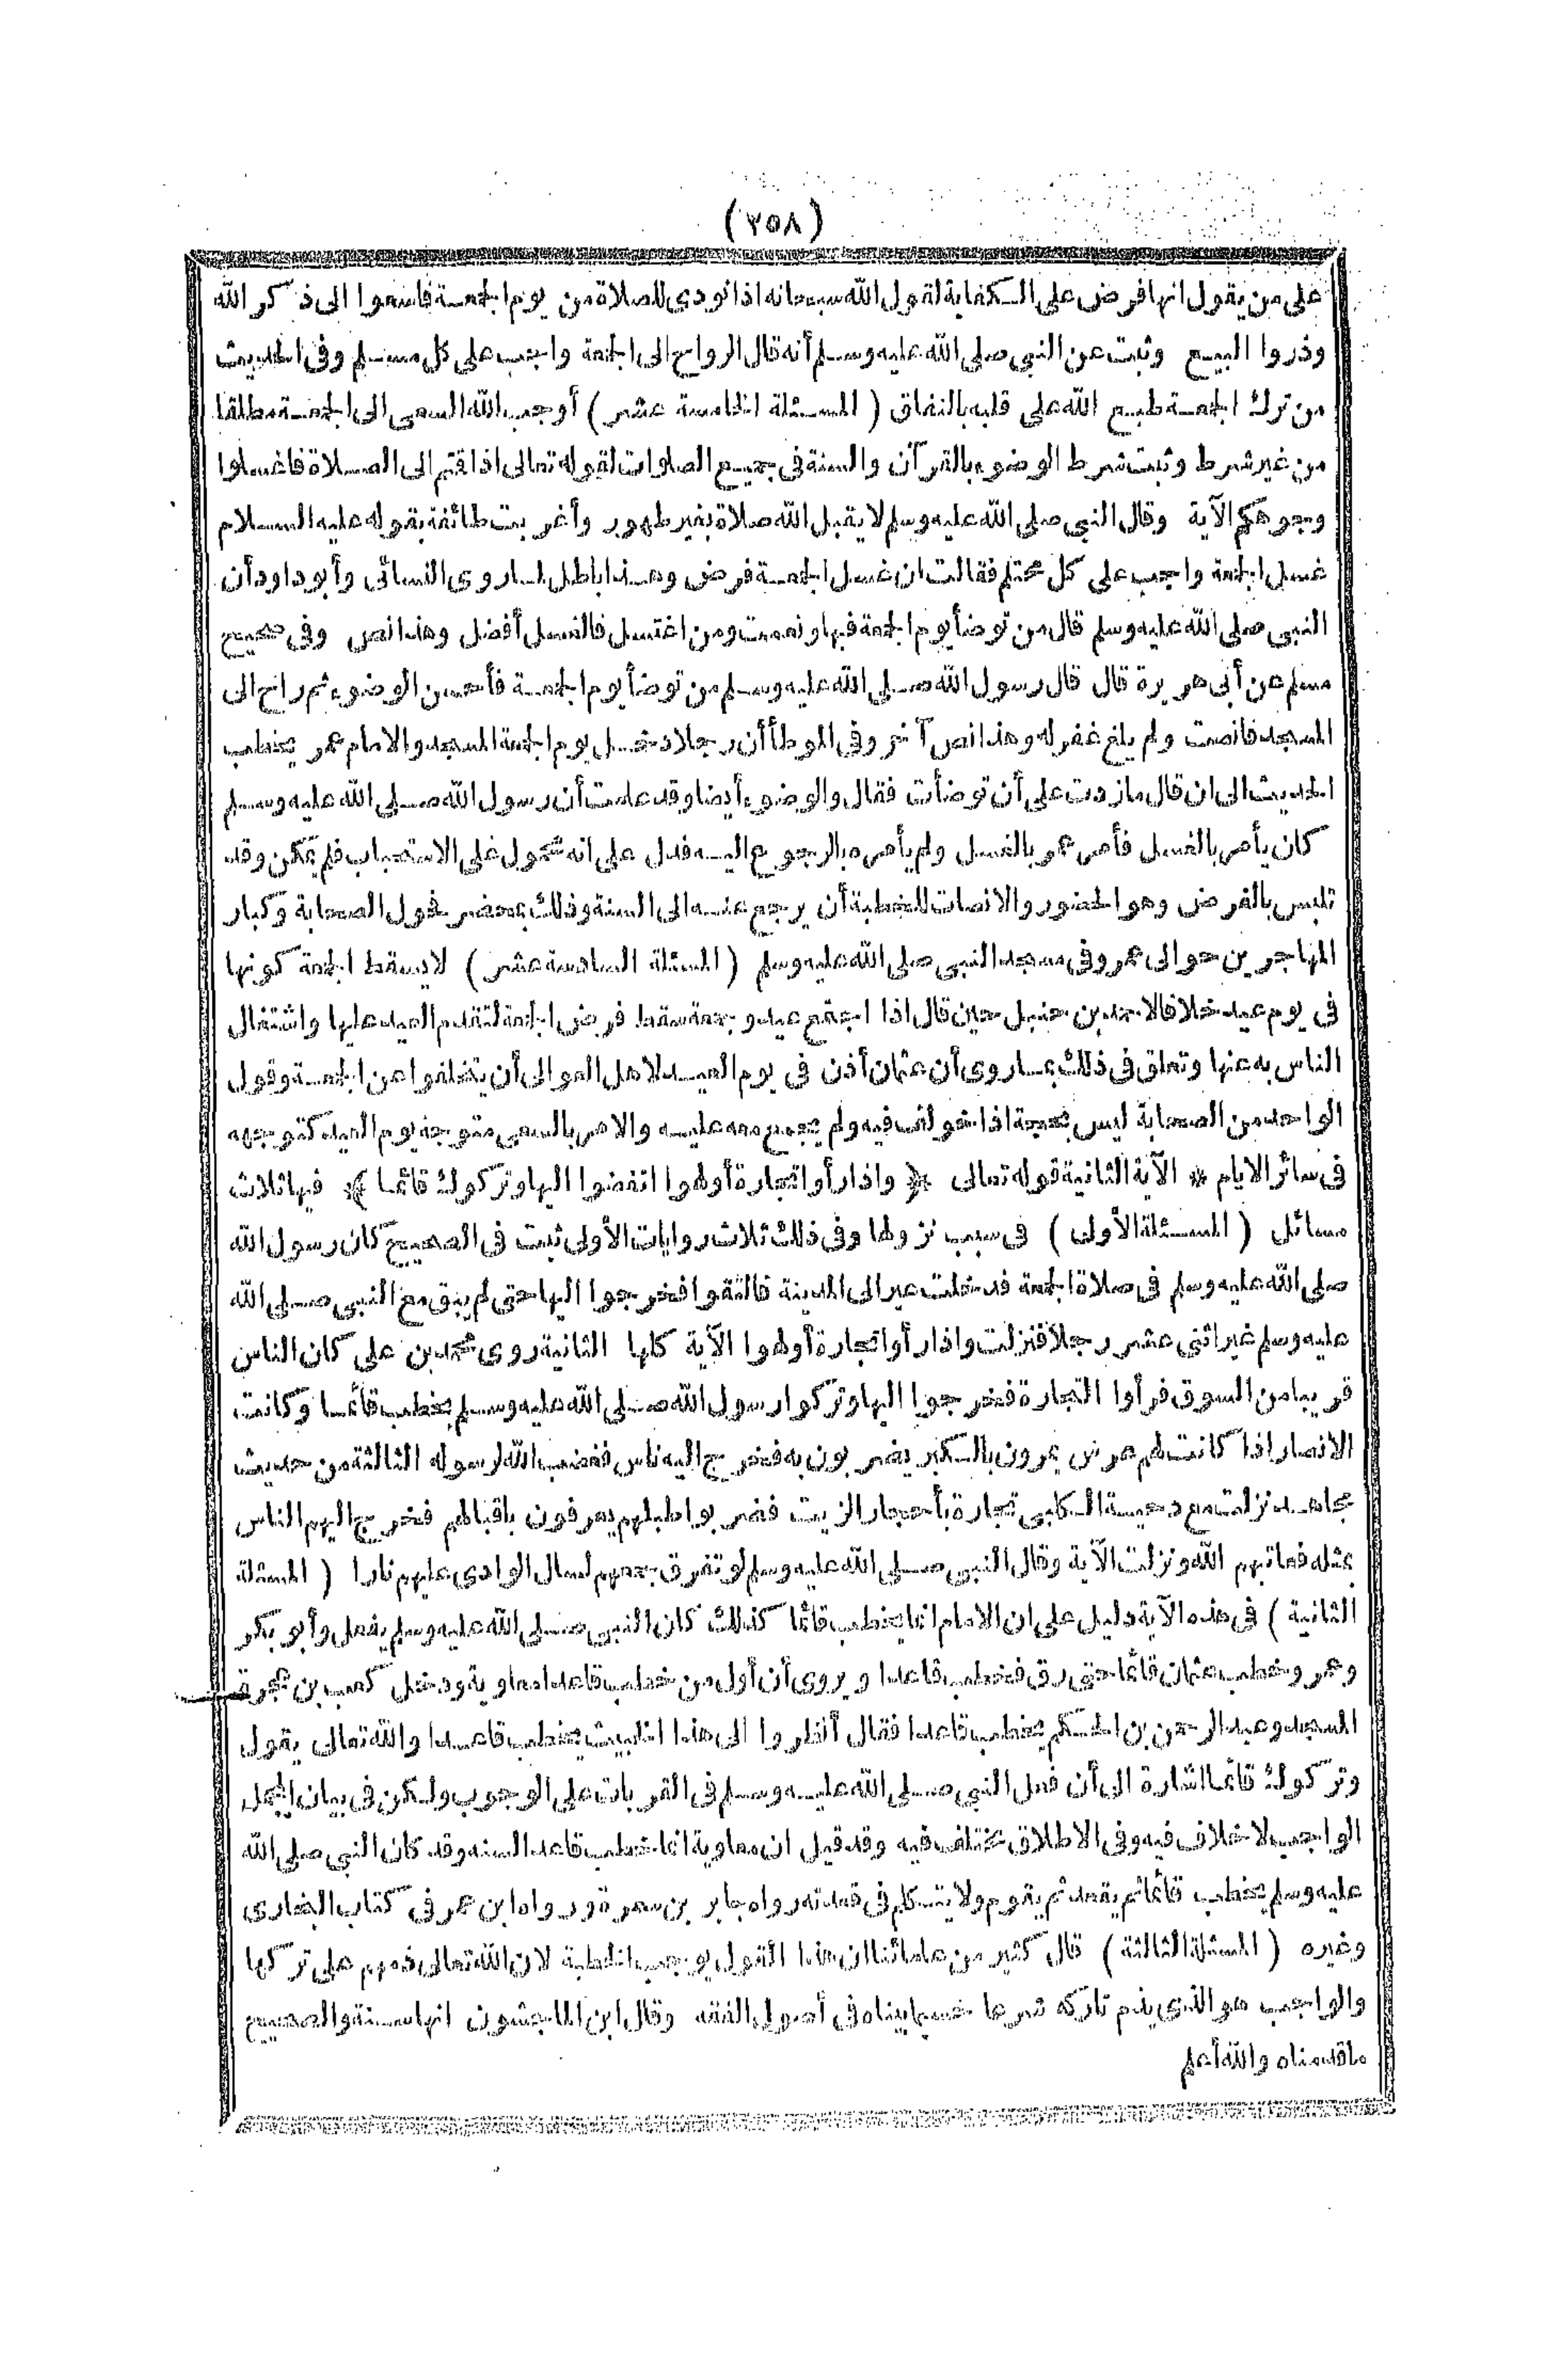 (٢٥٨)
على من يقول انها فرض على الكفاية لقول الله سبحانه اذا نودى للصلاة من يوم الجمعة فاسعوا الى ذكر الله
وذروا البيع وثبت عن النبى صلى الله عليه وسلم أنه قال الرواح الى الجمعة واجب على كل مسلم وفى الحديث
من ترك الجمعة طبع الله على قلبه بالنفاق (المسئلة الخامسة عشر) أوجب الله السعى الى الجمعة مطلقا
من غير شرط وثبت شرط الوضوء بالقرآن والسنة فى جميع الصلوات لقوله تعالى اذا قتم الى الصلاة فاغسلوا
وجوهكم الآية وقال النبى صلى الله عليه وسلم لا يقبل الله صلاة بغير طهور وأغربت طائفة بقوله عليه السلام
غسل الجمعة واجب على كل محتلم فقالت ان غسل الجمعة فرض وهذا باطل لما روى النسائى وأبوداود أن
النبى صلى الله عليه وسلم قال من توضأ يوم الجمعة فبها ونعمت ومن اغتسل فالغسل أفضل وهذا نص وفى صحيح
مسلم عن أبى هريرة قال قال رسول الله صلى الله عليه وسلم من توضأ يوم الجمعة فأحسن الوضوء ثم راح الى
المسجد فانصت ولم يلغ غفر له وهذا نص آخر وفى الموطأ أن رجلا دخل يوم الجمعة المسجد والامام عمر يخطب
الحديث الى ان قال ما زدت على أن توضأت فقال والوضوء أيضا وقد علمت أن رسول الله صلى الله عليه وسلم
كان يأمر بالغسل فأمر عمر بالغسل ولم يأمره بالرجوع اليه فدل على انه محمول على الاستحباب فلم يمكن وقد
تلبس بالفرض وهو الحضور والانصات للخطبة أن يرجع عنه الى السنة وذلك بمحضر فحول الصحابة وكبار
المهاجرين حوالى عمر وفى مسجد النبى صلى الله عليه وسلم (المسئلة السادسة عشر) لا يسقط الجمعة كونها
فى يوم عيد خلافا لاحمد بن حنبل حين قال اذا اجتمع عيد وجمعة سقط فرض الجمعة لتقدم العيد عليها واشتغال
الناس به عنها وتعلق فى ذلك بما روى أن عثمان أذن فى يوم العيد لاهل العوالى أن يتخلفوا عن الجمعة وقول
الواحد من الصحابة ليس بحجة اذا خولف فيه ولم يجمع معه عليه والامر بالسعى متوجه يوم العيد كتوجهه
فى سائر الايام * الآية الثانية قوله تعالى ﴿واذا رأوا تجارة أو لهوا انفضوا اليها وتركوك قائما﴾ فيها ثلاث
مسائل (المسئلة الأولى) فى سبب نزولها وفى ذلك ثلاث روايات الأولى ثبت فى الصحيح كان رسول الله
صلى الله عليه وسلم فى صلاة الجمعة فدخلت عير الى المدينة فالتقوا فخرجوا اليها حتى لم يبق مع النبى صلى الله
عليه وسلم غير اثنى عشر رجلا فنزلت واذا رأوا تجارة أو لهوا الآية كلها الثانية روى محمد بن على كان الناس
قريبا من السوق فرأوا التجارة فخرجوا اليها وتركوا رسول الله صلى الله عليه وسلم يخطب قائما وكانت
الانصار اذا كانت لهم عرس يمرون بالكبر يضربون به فخرج اليه ناس فغضب الله لرسوله الثالثة من حديث
مجاهد نزلت مع دحية الكلبى تجارة بأحجار الزيت فضربوا طبلهم يعرفون باقبالهم فخرج اليهم الناس
بمثله فعاتبهم الله ونزلت الآية وقال النبى صلى الله عليه وسلم لو تفرق جمعهم لسال الوادى عليهم نارا (المسئلة
الثانية) فى هذه الآية دليل على ان الامام انما يخطب قائما كذلك كان النبى صلى الله عليه وسلم يفعل وأبو بكر
وعمر وخطب عثمان قائما حتى رق فخطب قاعدا ويروى أن أول من خطب قاعدا معاوية ودخل كعب بن عجرة
المسجد وعبد الرحمن بن الحكم يخطب قاعدا فقال أنظروا الى هذا الخبيث يخطب قاعدا والله تعالى يقول
وتركوك قائما اشارة الى أن فعل النبى صلى الله عليه وسلم فى القربات على الوجوب ولكن فى بيان المجمل
الواجب لا خلاف فيه وفى الاطلاق مختلف فيه وقد قيل ان معاوية انما خطب قاعدا لسنه وقد كان النبى صلى الله
عليه وسلم يخطب قائما ثم يقعد ثم يقوم ولا يتكلم فى قعدته رواه جابر بن سمرة ورواه ابن عمر فى كتاب البخارى
وغيره (المسئلة الثالثة) قال كثير من علمائنا ان هذا القول يوجب الخطبة لان الله تعالى ذمهم على تركها
والواجب هو الذى يذم تاركه شرعا حسبما بيناه فى أصول الفقه وقال ابن الماجشون انها سنة والصحيح
ما قدمناه والله أعلم